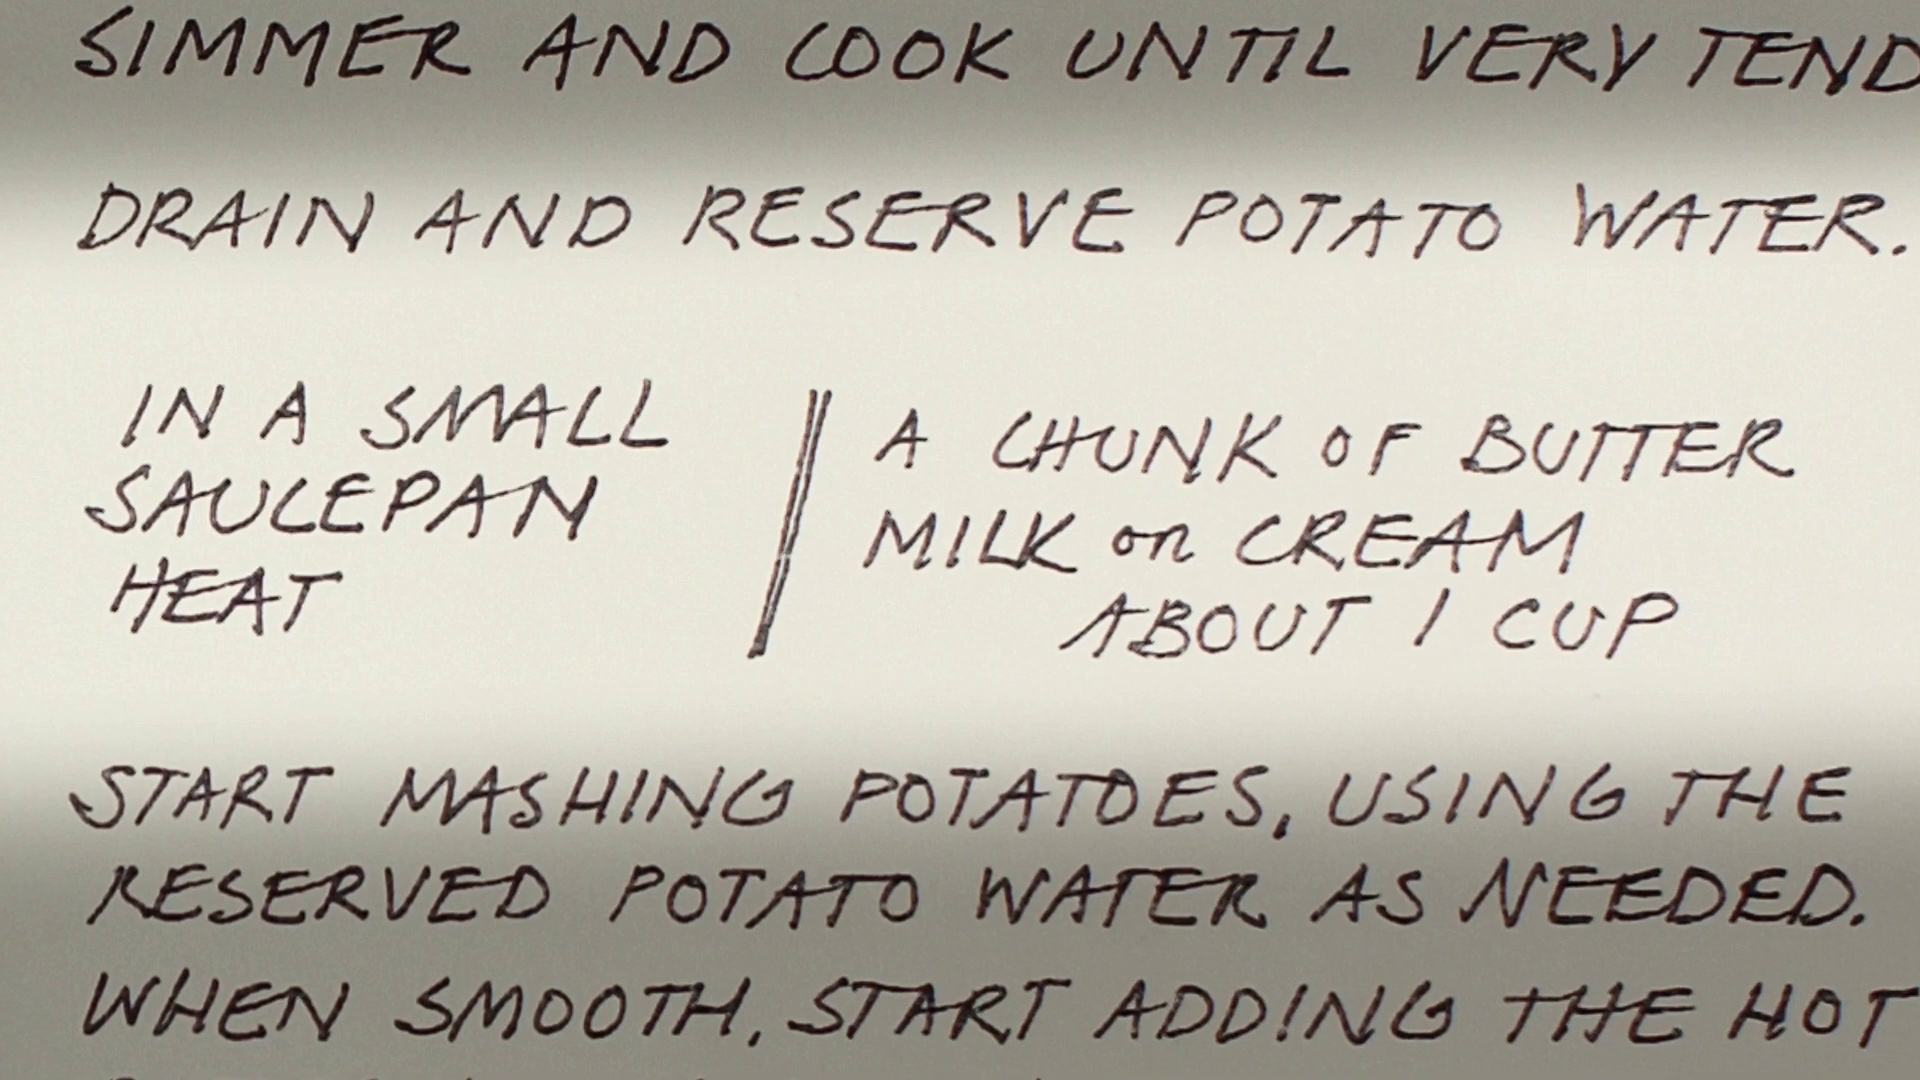 SIMMER AND COOK UNTIL VERY TEND
DRAIN AND RESERVE POTATO WATER.
IN A SMALL
SAUCEPAN
HEAT
A CHUNK OF BUTTER
MILK or CREAM
ABOUT 1 CUP
START MASHING POTATOES, USING THE
RESERVED POTATO WATER AS NEEDED.
WHEN SMOOTH, START ADDING THE HOT